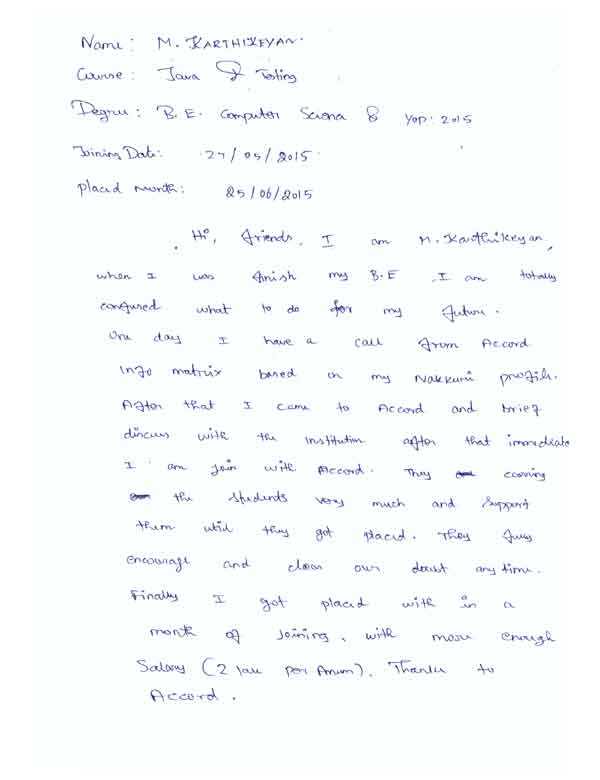 Name: M. KARTHIKEYAN.
Course: Java & Testing
Degree: B.E. Computer Science & YOP: 2015
Joining Date: 27/05/2015
Placed Month: 25/06/2015
Hi, friends, I am M. Karthikeyan,
when I was finish my B.E. I am totally
confused what to do for my future.
One day I have a call from Accord
Info matrix based on my Nakkuri profile.
After that I came to Accord and brief
discuss with the institution after that immediate
I am join with Accord. They caring
the students very much and support
them until they got placed. They fully
encourage and clear our doubt any time.
Finally I got placed with in a
month of Joining, with more enough
Salary (2 lak per Anum). Thanks to
Accord.